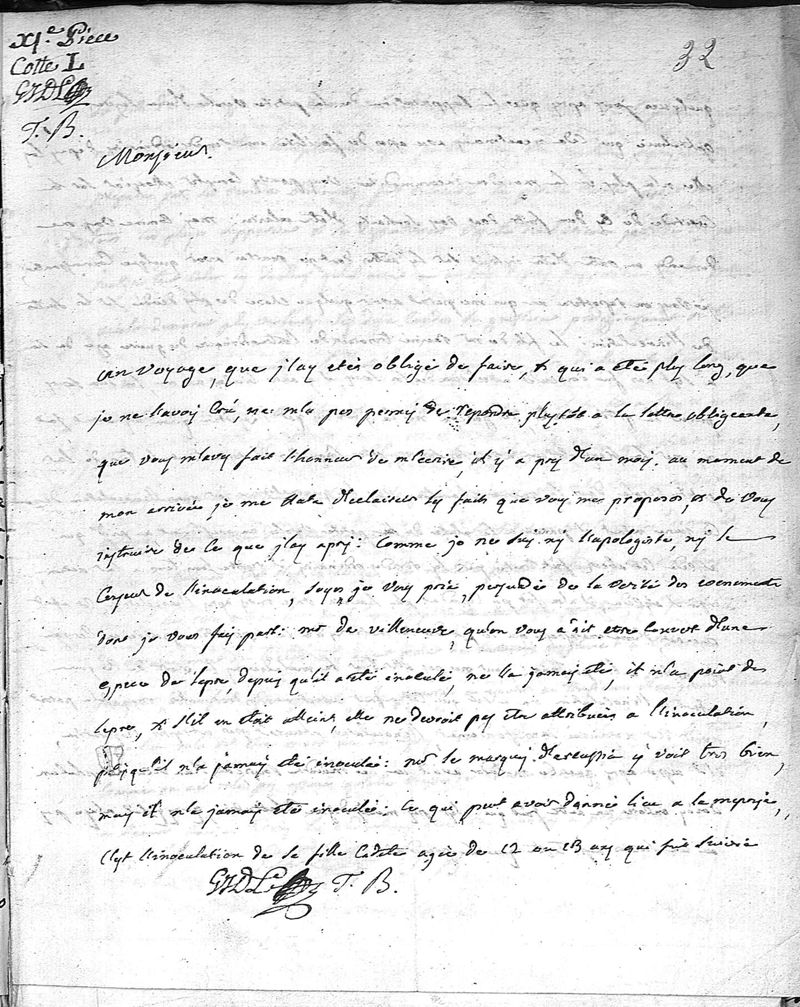 XIe Piece
32
Cotte L
GJDL
T. B.
Monsieur.
un voyage, que j'ay etés obligé de faire, & qui a été plus long, que
je ne l'avois crû, ne m'a pas permis de repondre plustôt a la lettre obligeante,
que vous m'avez fait l'honneur de m'ecrire, il y a prez d'un mois. au moment de
mon arrivée, je me hate d'eclaircir les faits que vous me proposez, & de vous
instruire de ce que j'ay apris: Comme je ne suis ny l'apologiste, ny le
Censeur de l'inoculation, soyez je vous prie, persuadée de la verité des evenements
dont je vous fais part: mr de villeneuve, qu'on vous a dit etre couvert d'une
espece de lepre, depuis qu'il a été inoculé, ne l'a jamais été, il n'a point de
lepre, & s'il en etoit atteint, elle ne devroit pas être attribuée a l'inoculation,
puisqu'il n'a jamais été inoculé: mr le marquis y voit tres bien,
mais il n'a jamais été inoculé: ce qui peut avoir donnée lieu a la meprise,
c'est l'inoculation de sa fille Cadete agée de 12 ou 13 ans qui fut suivie
GJDL T. B.